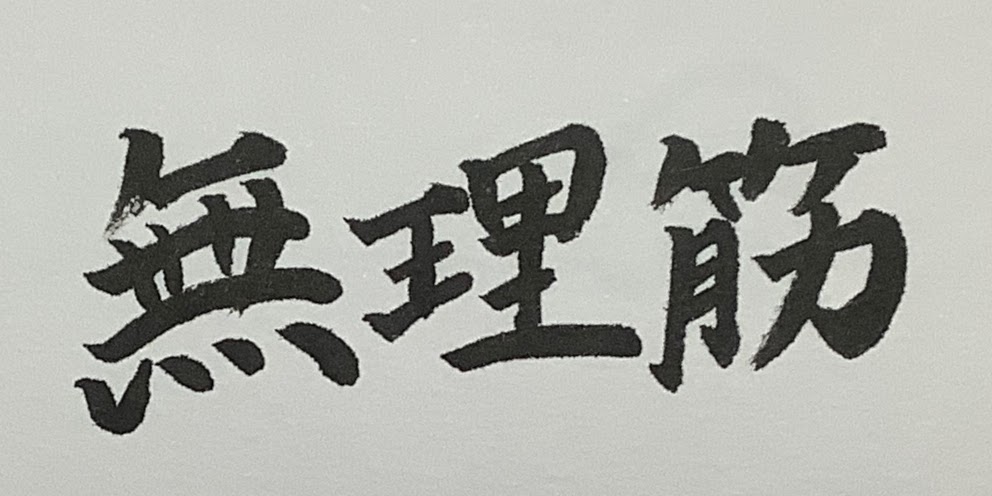 無理筋